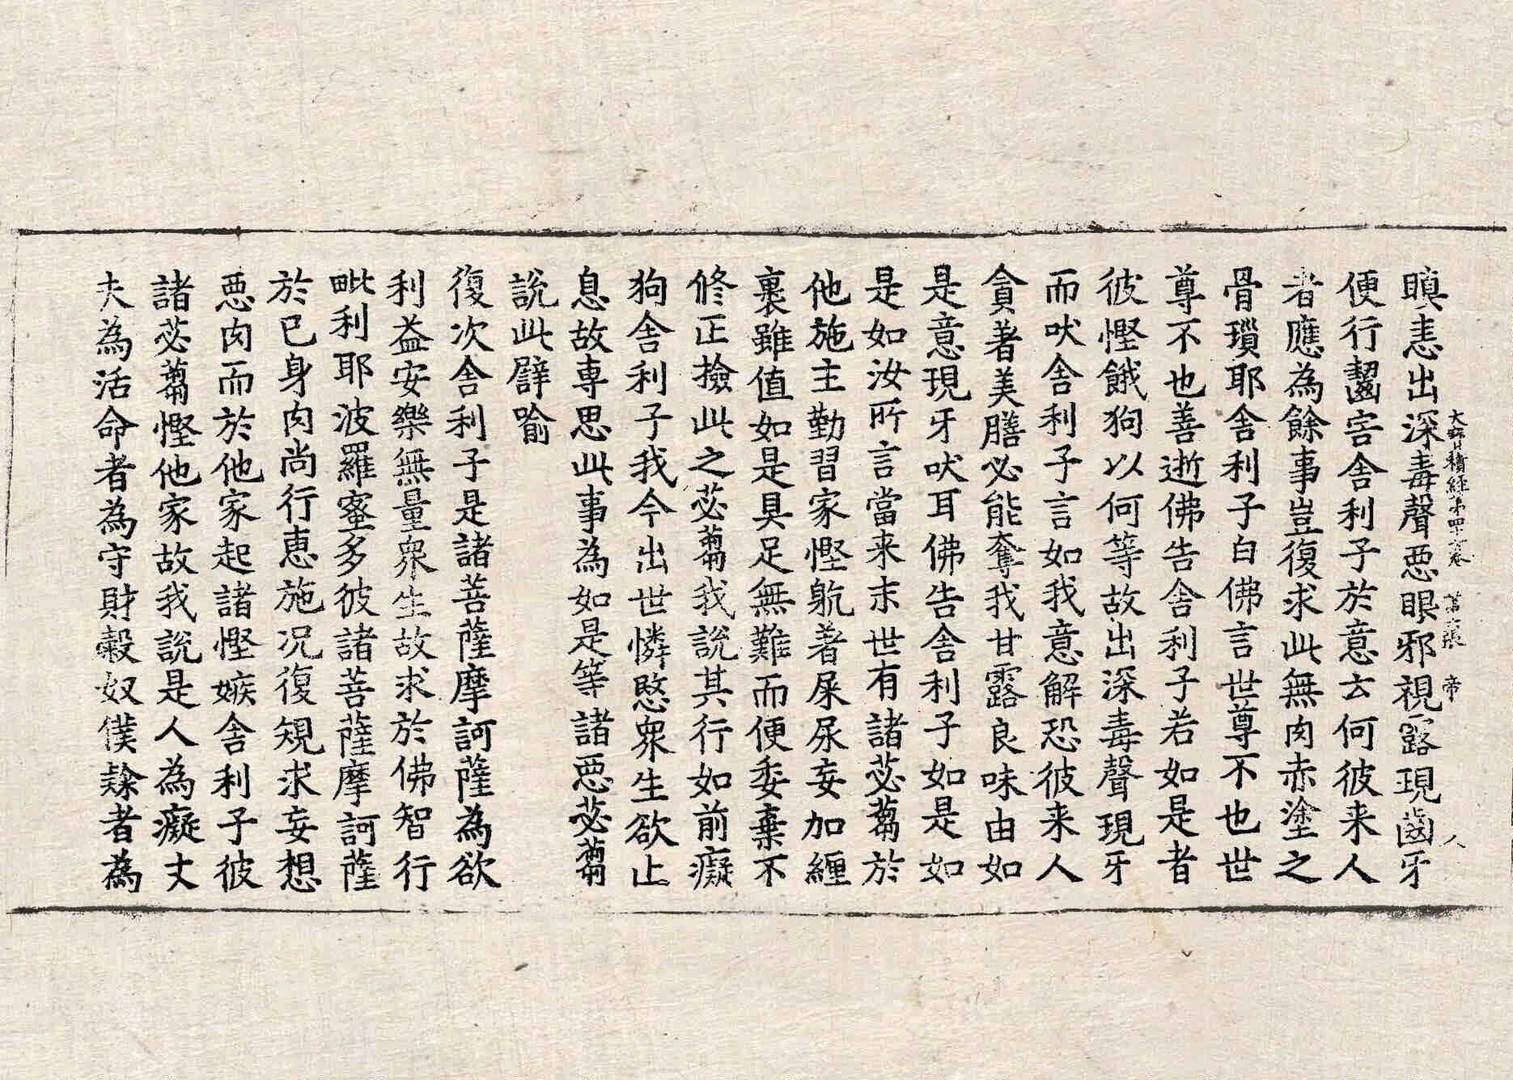 大寶積經第四十六卷 第六張 帝
瞋恚出深毒聲惡眼邪視露現齒牙
便行齧害舍利子於意云何彼来人
者應為餘事豈復求此無肉赤塗之
骨瑣耶舍利子白佛言世尊不也世
尊不也善逝佛告舍利子若如是者
彼慳餓狗以何等故出深毒聲現牙
而吠舍利子言如我意解恐彼来人
貪著美膳必能奪我甘露良味由如
是意現牙吠耳佛告舍利子如是如
是如汝所言當来末世有諸苾蒭於
他施主勤習家慳躭著屎尿妄加纏
裹雖值如是具足無難而便委棄不
修正撿此之苾蒭我說其行如前癡
狗舍利子我今出世憐愍衆生欲止
息故專思此事為如是等諸惡苾蒭
說此譬喻
復次舍利子是諸菩薩摩訶薩為欲
利益安樂無量衆生故求於佛智行
毗利耶波羅蜜多彼諸菩薩摩訶薩
於己身肉尚行惠施况復規求妄想
惡肉而於他家起諸慳嫉舍利子彼
諸苾蒭慳他家故我說是人為癡丈
夫為活命者為守財穀奴僕隸者為
人